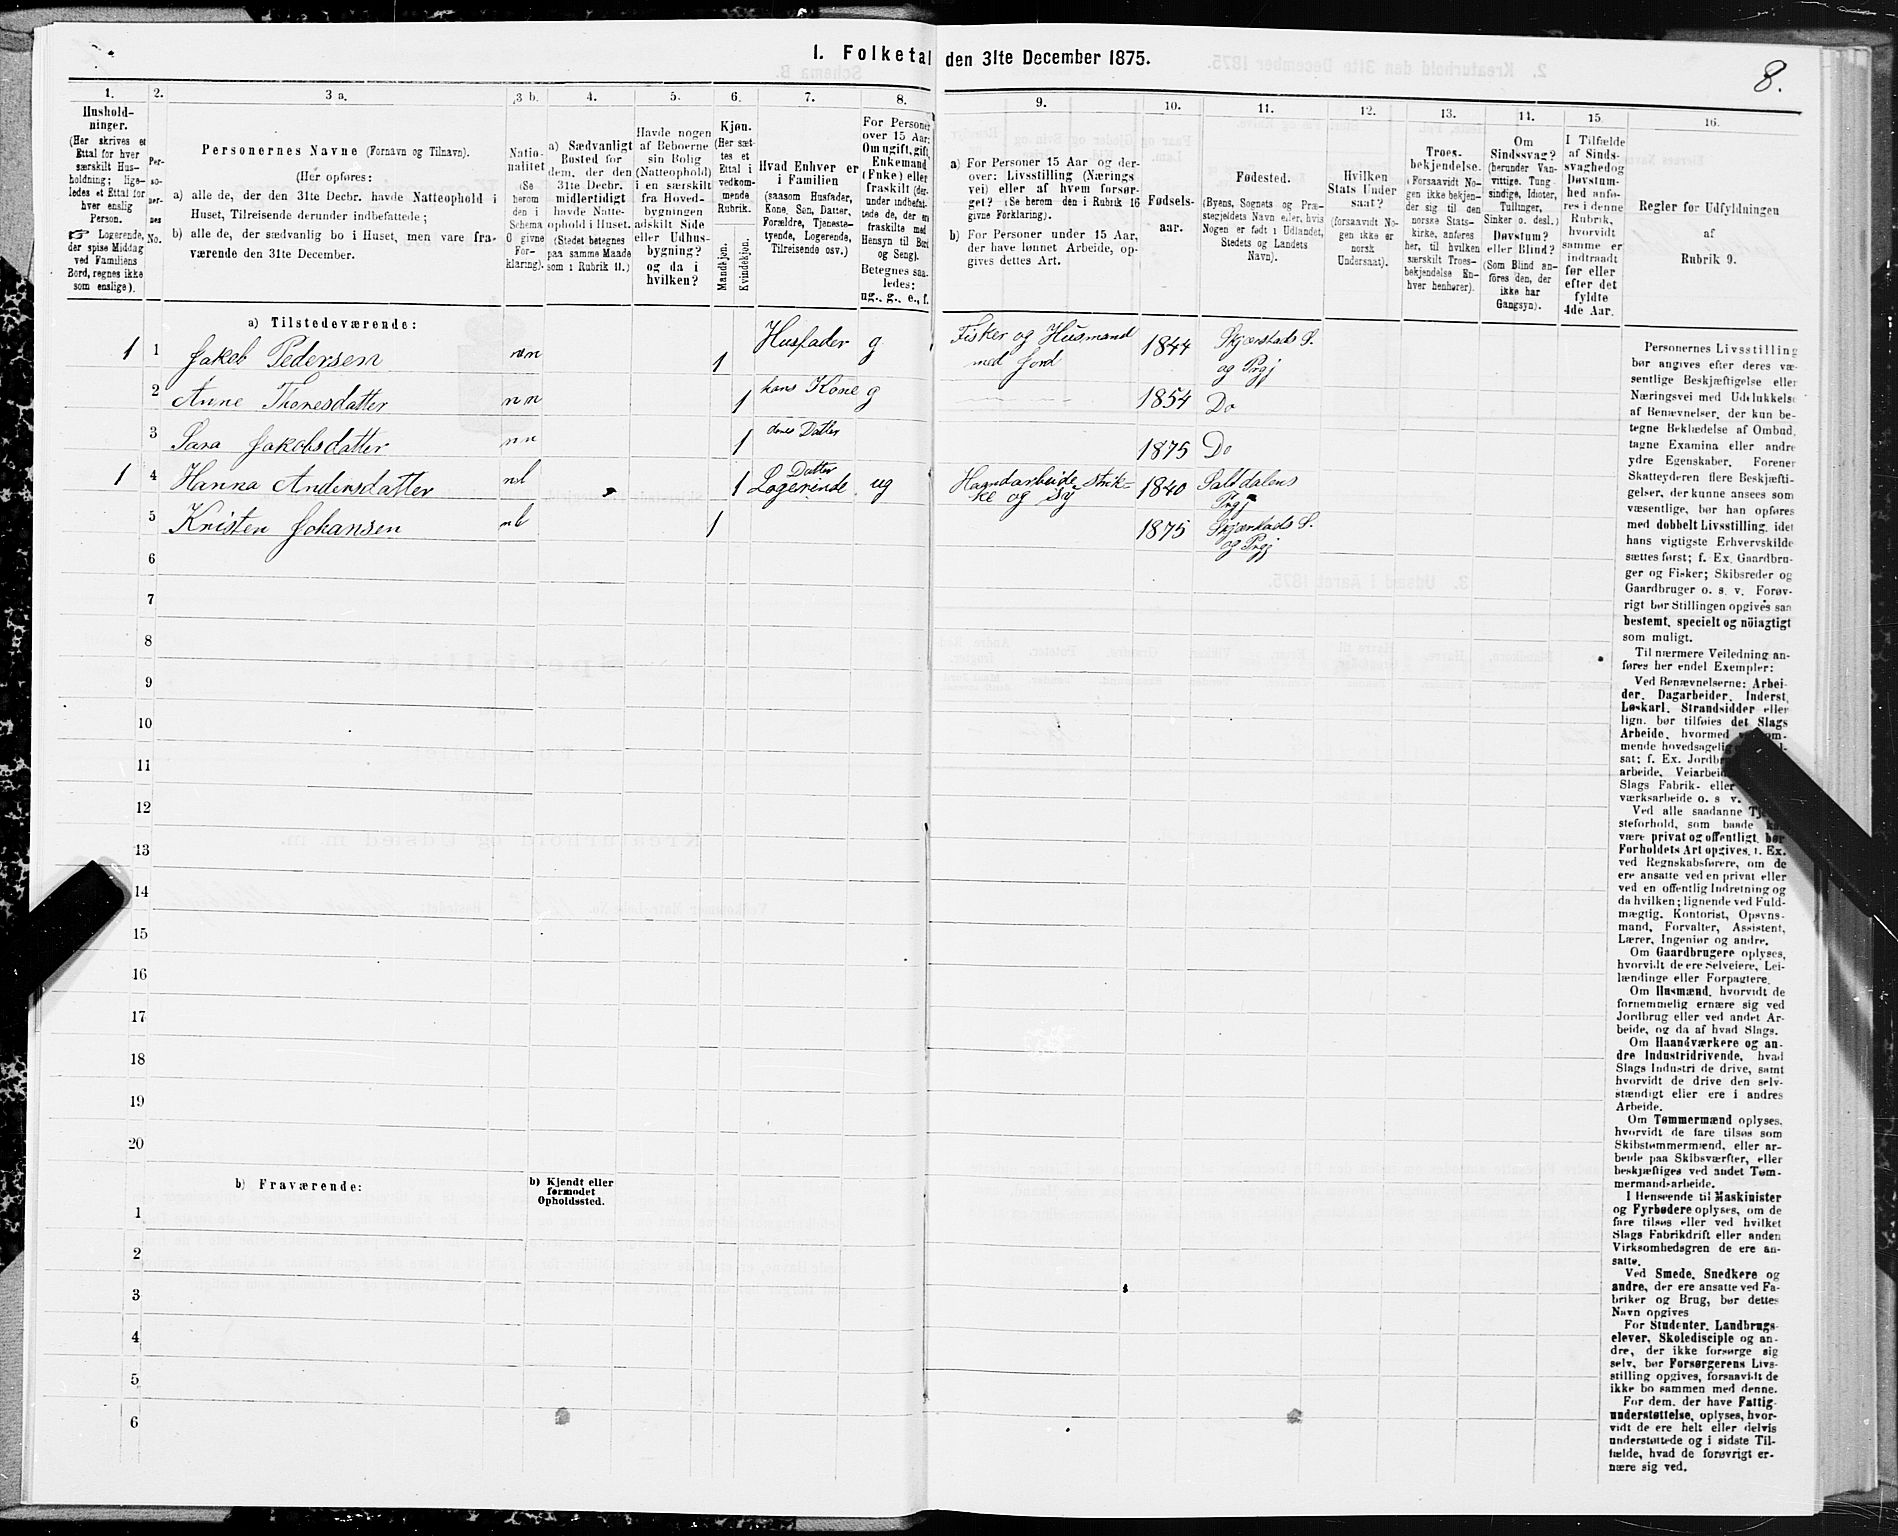 1. Folketal den 31te December 1875.
8.
1. 2. 3 a. 3 b. 4. 5. 6. 7. 8. 9. 10. 11. 12. 13. 14. 15. 16.
Hushold-
ninger.
(Her skrives et
Ettal for hver
særskilt Hus-
holdning; lige-
ledes et Ettal for
hver enslig
Person.
☞ Logerende,
der spise Middag
ved Familiens
Bord, regnes ikke
som enslige).
Per-
so-
ner-
nes
No.
Personernes Navne (Fornavn og Tilnavn).
(Her opføres:
a) alle de, der den 31te Decbr. havde Natteophold i
Huset, Tilreisende derunder indbefattede;
b) alle de, der sædvanlig bo i Huset, men vare fra-
værende den 31te December.
Natio-
nalitet
(Se
herom
den i
Schema
O givne
For-
klaring).
a) Sædvanligt
Bosted for
dem, der den
31te Decbr.
midlertidigt
havde Natte-
ophold i Huset.
(Stedet betegnes
paa samme Maade
som i Rubrik 11.)
Havde nogen
af Beboerne
sin Bolig
(Natteophold)
i en særskilt
fra Hoved-
bygningen
adskilt Side
eller Udhus-
bygning?
og da i
hvilken?
Kjøn.
(Her sæt-
tes et
Ettal i
vedkom-
mende
Rubrik.
Mandkjøn.
Kvindekjøn.
Hvad Enhver er
i Familien
(saasom Husfader,
Kone, Søn, Datter,
Forældre, Tjeneste-
tyende, Logerende,
Tilreisende osv.)
For Personer
over 15 Aar:
Om ugift, gift,
Enkemand
(Enke) eller
fraskilt (der-
under indbefat-
tede de, der ere
fraskilte med
Hensyn til Bord
og Seng).
Betegnes saa-
ledes:
ug., g., e., f.
a) For Personer 15 Aar og der-
over: Livsstilling (Nærings-
vei) eller af hvem forsør-
get? (Se herom den i Rubrik 16
givne Forklaring).
b) For Personer under 15 Aar,
der have lønnet Arbeide, op-
gives dettes Art.
Fødsels-
aar.
Fødested.
(Byens, Sognets og Præ-
stegjeldets Navn eller, hvis
Nogen er født i Udlandet,
Stedets og Landets
Navn).
Hvilken
Stats Under-
saat?
(forsaavidt No-
gen ikke er
norsk
Undersaat).
Troes-
bekjendelse.
(Forsaavidt No-
gen ikke bekjen-
der sig til den
norske Stats-
kirke, anføres
her, til hvilken
særskilt Troes-
bekjendelse En-
hver henhører).
Om
Sindssvag?
(herunder Van-
vittige, Tung-
sindige, Idioter,
Tullinger,
Sinker o. desl.)
Døvstum?
eller Blind?
(Som Blind an-
føres den, der
ikke har
Gangsyn).
I Tilfælde
af Sinds-
svaghed og
Døvstum-
hed anfø-
res i denne
Rubrik,
hvorvidt
samme er
indtraadt
før eller
efter det
fyldte
4de Aar.
Regler for Udfyldningen
af
Rubrik 9.
a) Tilstedeværende:
1 1 Jakob Pedersen nn 1 Husfader g Fisker og Husmand med Jord 1844 Skjerstads S. og Prgj
2 Anne Thonesdatter nn 1 hans Kone g 1854 Do
3 Sara Jakobsdatter nn 1 deres Datter 1875 Do
1 4 Hanna Andersdatter nl 1 Datter Logerinde ug Haandarbeide strik-ke og Sy 1840 Saltdalens Prgj
5 Kristen Johansen nl 1 1875 Skjerstads S. og Prgj
6
7
8
9
10
11
12
13
14
15
16
17
18
19
20
b) Fraværende:
b) Kjendt eller
formodet
Opholdssted.
1
2
3
4
5
6
Personernes Livsstilling
bør angives efter deres væ-
sentlige Beskjæftigelse eller
Næringsvei med Udelukkelse
af Benævnelser, der kun be-
tegne Beklædelse af Ombud,
tagne Examina eller andre
ydre Egenskaber. Forener
Skatteyderen flere Beskjæfti-
gelser, der kunne ansees som
væsentlige, bør han opføres
med dobbelt Livsstilling, idet
hans vigtigste Erhvervskilde
sættes først; f. Ex. Gaardbru-
ger og Fisker; Skibsreder og
Gaardbruger o. s. v. Forøv-
rigt bør Stillingen opgives saa
bestemt, specielt og nöiagtigt
som muligt.
Til nærmere Veiledning an-
føres her endel Exempler:
Ved Benævnelserne: Arbei-
der, Dagarbeider, Inderst,
Løskarl, Strandsidder eller
lign. bør tilføies det Slags
Arbeide, hvormed
mende hovedsagelig
sat; f. Ex.
arbeide,
Slags Fabrik- eller
værksarbeide o. s. v.
Ved alle saadanne
steforhold, som baade
være privat og offentligt, bør
Forholdets Art opgives, f. Ex.
ved Regnskabsførere, om de
ere ansatte ved en privat eller
ved en offentlig Indretning og
da hvilken; lignende ved Fuld-
mægtig, Kontorist, Opsyns-
mand, Forvalter, Assistent,
Lærer, Ingeniør og andre.
Om Gaardbrugere oplyses,
hvorvidt de ere Selveiere, Lei-
lændinge eller Forpagtere.
Om Husmænd, hvorvidt de
fornemmelig ernære sig ved
Jordbrug eller ved andet Ar-
beide, og da af hvad Slags.
Om Haandværkere og an-
dre Industridrivende, hvad
Slags Industri de drive, samt
hvorvidt de drive den selv-
stændigt eller ere i andres
Arbeide.
Om Tømmermænd oplyses,
hvorvidt de fare tilsøs som
Skibstømmermænd, eller ar-
beide paa Skibsværfter, eller
beskjæftiges ved andet Tøm-
mermandsarbeide.
I Henseende til Maskinister
og Fyrbødere oplyses, om de
fare tilsøs eller ved hvilket
Slags Fabrikdrift eller anden
Virksomhedsgren de ere an-
satte.
Ved Smede, Snedkere og
andre, der ere ansatte ved Fa-
briker og Brug, bør dettes
Navn opgives
For Studenter, Landbrugs-
elever, Skoledisciple og an-
dre, der ikke forsørge sig
selv, bør Forsørgerens Livs-
stilling opgives, forsaavidt de
ikke bo sammen med denne.
For dem, der have Fattig-
understøttelse, oplyses, hvor-
vidt de ere helt eller delvis
understøttede og i sidste Til-
fælde, hvad de forøvrigt er-
nære sig ved.